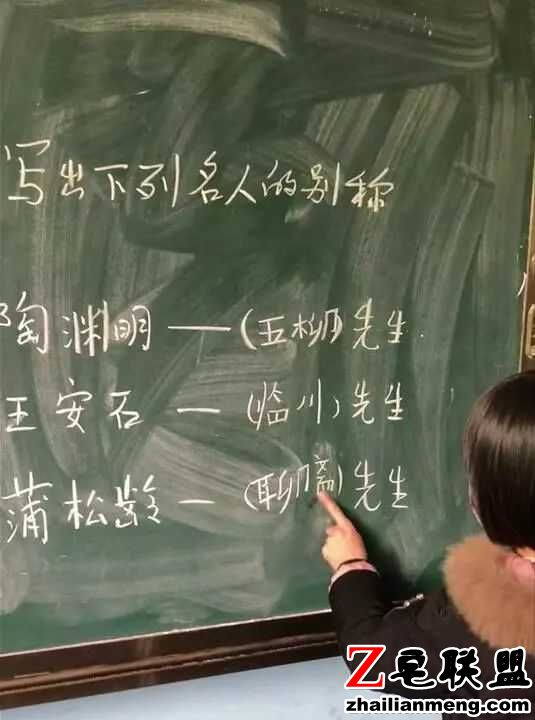 写出下列名人的别称
陶渊明——(五柳)先生
王安石—(临川)先生
蒲松龄—(聊斋)先生
Z 宅联盟
zhailianmeng.com